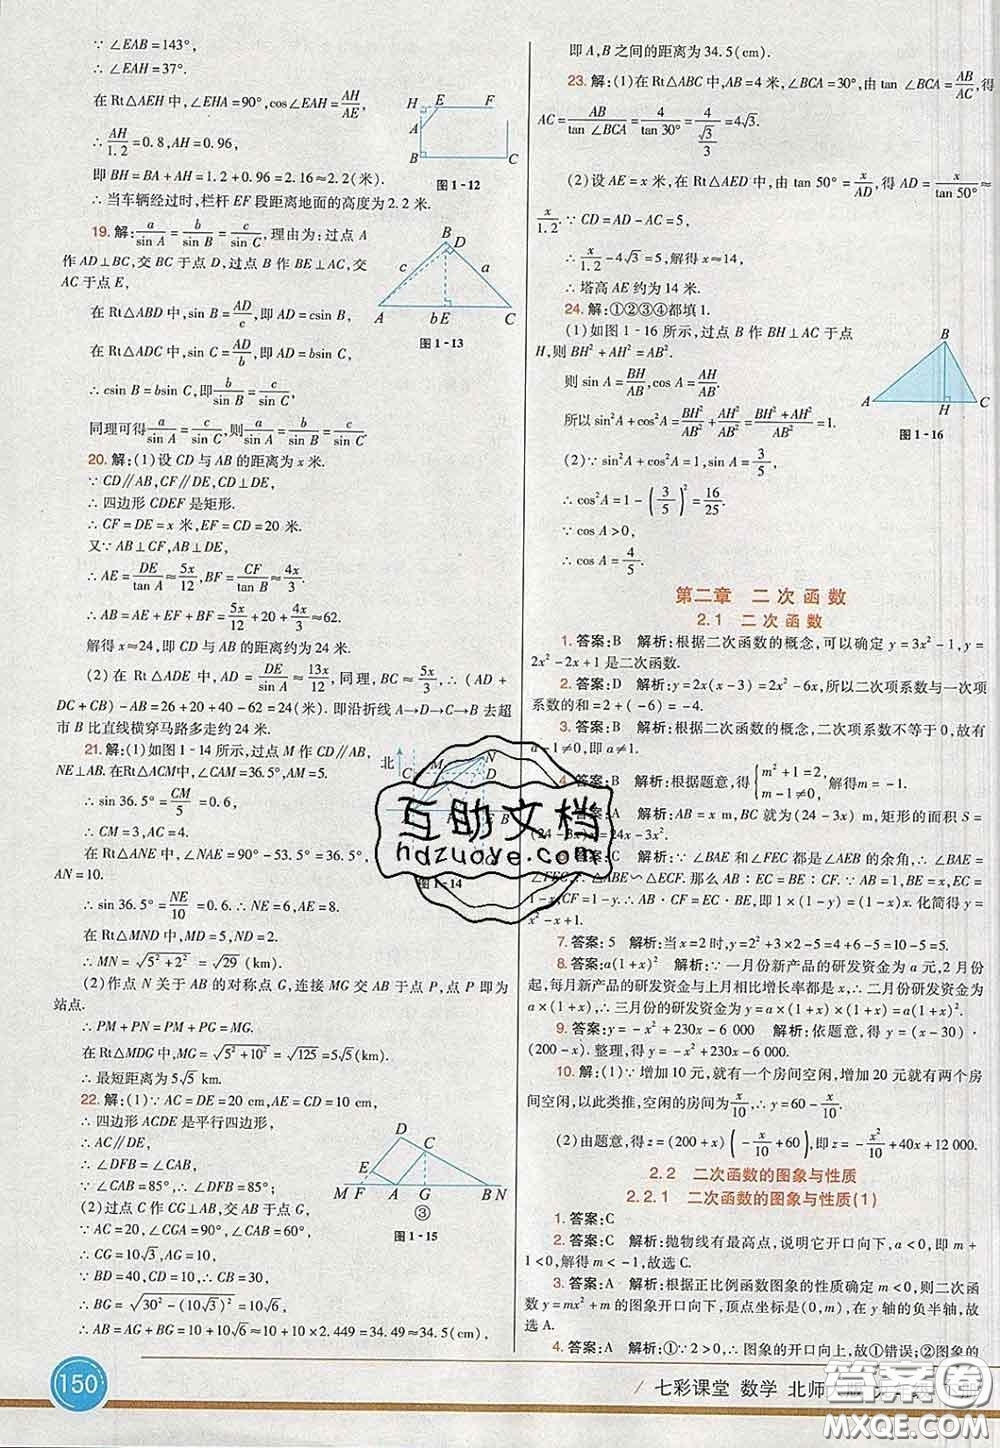 ∵ ∠EAB=143°,
∴ ∠EAH=37°.
在 Rt△AEH 中,∠EHA=90°,cos∠EAH=AH/AE,
∴ AH/1.2=0.8,AH=0.96,
即 BH=BA+AH=1.2+0.96=2.16≈2.2(米).
∴ 当车辆经过时,栏杆 EF 段距离地面的高度为 2.2 米.
H E F A B C
图 1-12
19. 解:a/sin A=b/sin B=c/sin C,理由为:过点 A
作 AD⊥BC,交 BC 于点 D,过点 B 作 BE⊥AC,交
AC 于点 E,
在 Rt△ABD 中,sin B=AD/c,即 AD=csin B,
在 Rt△ADC 中,sin C=AD/b,即 AD=bsin C,
∴ csin B=bsin C,即b/sin B=c/sin C,
同理可得a/sin A=c/sin C,则a/sin A=b/sin B=c/sin C.
B D c a A b E C
图 1-13
20. 解:(1)设 CD 与 AB 的距离为 x 米.
∵ CD∥AB,CF∥DE,CD⊥DE,
∴ 四边形 CDEF 是矩形.
∴ CF=DE=x 米,EF=CD=20 米.
又∵ AB⊥CF,AB⊥DE,
∴ AE=DE/tan A≈5x/12,BF=CF/tan B≈4x/3.
∴ AB=AE+EF+BF=5x/12+20+4x/3=62.
解得 x≈24,即 CD 与 AB 的距离约为 24 米.
(2)在 Rt△ADE 中,AD=DE/sin A≈13x/12,同理,BC≈5x/3,∴(AD+
DC+CB)-AB=26+20+40-62=24(米).即沿折线 A→D→C→B 去超
市 B 比直线横穿马路多走约 24 米.
21. 解:(1)如图 1-14 所示,过点 M 作 CD∥AB,
NE⊥AB.在 Rt△ACM 中,∠CAM=36.5°,AM=5,
∴ sin 36.5°=CM/5=0.6,
∴ CM=3,AC=4.
在 Rt△ANE 中,∠NAE=90°-53.5°=36.5°,
AN=10.
∴ sin 36.5°=NE/10=0.6,∴ NE=6,AE=8.
在 Rt△MND 中,MD=5,ND=2.
∴ MN=√(5²+2²)=√29 (km).
北 C M N D B
图 1-14
(2)作点 N 关于 AB 的对称点 G,连接 MG 交 AB 于点 P,点 P 即为
站点.
∴ PM+PN=PM+PG=MG.
在 Rt△MDG 中,MG=√(5²+10²)=√125=5√5(km).
∴ 最短距离为 5√5 km.
22. 解:(1)∵ AC=DE=20 cm,AE=CD=10 cm,
∴ 四边形 ACDE 是平行四边形.
∴ AC∥DE.
∴ ∠DFB=∠CAB.
∵ ∠CAB=85°,∴ ∠DFB=85°.
(2)过点 C 作 CG⊥AB 于点 G,
∵ AC=20,∠CGA=90°,∠CAB=60°,
∴ CG=10√3,AG=10.
∵ BD=40,CD=10,∴ CB=30.
∴ BG=√(30²-(10√3)²)=10√6,
∴ AB=AG+BG=10+10√6≈10+10×2.449=34.49≈34.5(cm),
D C E M F A G B N
③
图 1-15
即 A,B 之间的距离为 34.5(cm).
23. 解:(1)在 Rt△ABC 中,AB=4 米,∠BCA=30°,由 tan ∠BCA=AB/AC,得
AC=AB/tan ∠BCA=4/tan 30°=4/(√3/3)=4√3.
(2)设 AE=x 米,在 Rt△AED 中,由 tan 50°=x/AD,得 AD=x/tan 50°≈
x/1.2.∵ CD=AD-AC=5,
∴ x/1.2-4√3=5,解得 x≈14,
∴ 塔高 AE 约为 14 米.
24. 解:①②③④都填1.
(1)如图 1-16 所示,过点 B 作 BH⊥AC 于点
H,则 BH²+AH²=AB².
则 sin A=BH/AB,cos A=AH/AB.
所以 sin²A+cos²A=BH²/AB²+AH²/AB²=(BH²+AH²)/AB²=1.
(2)∵ sin²A+cos²A=1,sin A=3/5,
∴ cos²A=1-(3/5)²=16/25.
∵ cos A>0,
∴ cos A=4/5.
B A H C
图 1-16
第二章 二次函数
2.1 二次函数
1. 答案:B 解析:根据二次函数的概念,可以确定 y=3x²-1,y=
2x²-2x+1 是二次函数.
2. 答案:D 解析:y=2x(x-3)=2x²-6x,所以二次项系数与一次项
系数的和=2+(-6)=-4.
3. 答案:B 解析:根据二次函数的概念,二次项系数不等于0,故有
a-1≠0,即 a≠1.
4. 答案:B 解析:根据题意,得{m²+1=2, m-1≠0,解得m=-1.
5. 答案:A 解析:AB=x m,BC 就为(24-3x) m,矩形的面积 S=
(24-3x)x=24x-3x².
6. 答案:C 解析:∵ ∠BAE 和∠FEC 都是∠AEB 的余角,∴ ∠BAE=
∠FEC.∴ △ABE∽△ECF.那么 AB:EC=BE:CF.∵ AB=1,BE=x,EC=
1-x,CF=1-y.∴ AB·CF=EC·BE,即 1×(1-y)=(1-x)x.化简得
y=x²-x+1.
7. 答案:5 解析:当x=2时,y=2×2²+3×2-9=8+6-9=5.
8. 答案:a(1+x)² 解析:∵ 一月份新产品的研发资金为 a 元,2 月份
起,每月新产品的研发资金与上月相比增长率都是 x,∴ 二月份研发资金为
a×(1+x),∴ 三月份的研发资金为 a×(1+x)×(1+x)=a(1+x)².
9. 答案:y=-x²+230x-6 000 解析:依题意,得 y=(x-30)·
(200-x).整理,得 y=-x²+230x-6 000.
10. 解:(1)∵ 增加 10 元,就有一个房间空闲,增加 20 元就有两个房
间空闲,以此类推,空闲的房间为x/10,∴ y=60-x/10.
(2)由题意,得 z=(200+x)(-x/10+60),即z=-x²/10+40x+12 000.
2.2 二次函数的图象与性质
2.2.1 二次函数的图象与性质(1)
1. 答案:C
2. 答案:C 解析:抛物线有最高点,说明它开口向下,a<0,即 m+
1<0,解得 m<-1,故选 C.
3. 答案:A 解析:根据正比例函数图象的性质确定 m<0,则二次函
数 y=mx²+m 的图象开口向下,顶点坐标是(0,m),在 y 轴的负半轴,故
选 A.
4. 答案:A 解析:①∵ 2>0,∴ 图象的开口向上,故①错误;②图象的
150
七彩课堂 数学 北师
互助文档
hdzuoye.com
答案圈
MXQE.COM